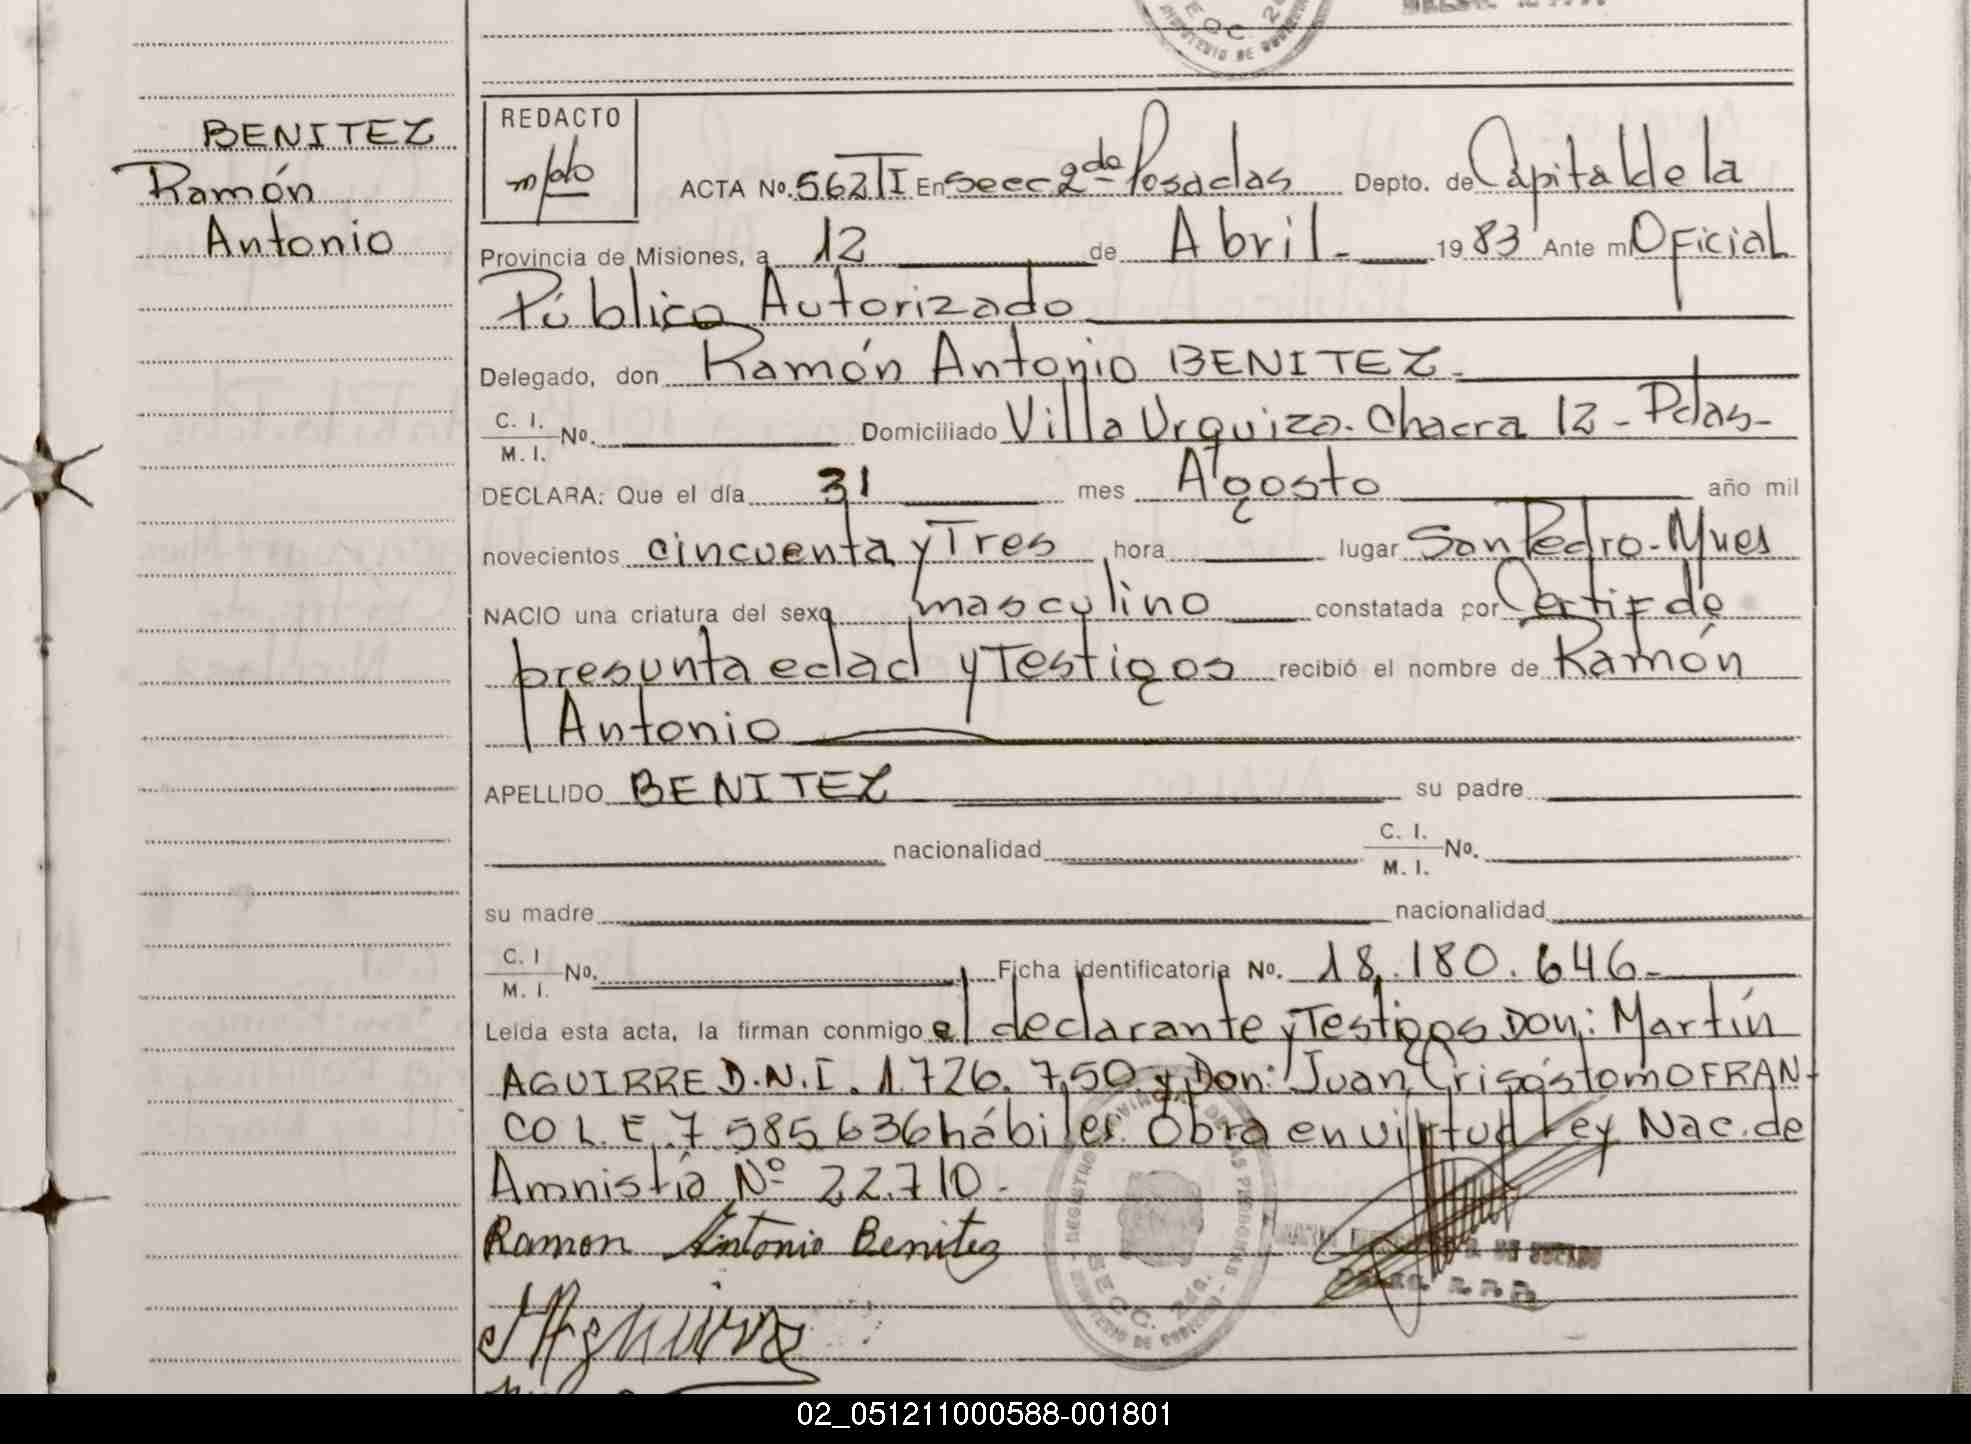 BENITEZ
Ramón
Antonio
REDACTO
ACTA No. 562 TI En Secc 2da Posadas Depto. de Capital de la
Provincia de Misiones, a 12 de Abril - 19 83 Ante mi Oficial
Público Autorizado
Delegado, don Ramón Antonio BENITEZ -
C. I.
M. I. No. Domiciliado Villa Urquiza - Chacra 12 - Pdas -
DECLARA: Que el día 31 mes Agosto año mil
novecientos cincuenta y Tres hora lugar San Pedro - Mnes
NACIO una criatura del sexo masculino constatada por Certif de
presunta edad y Testigos recibió el nombre de Ramón
Antonio
APELLIDO BENITEZ su padre
nacionalidad C. I.
M. I. No.
su madre nacionalidad
C. I
M. I. No. Ficha identificatoria No. 18.180.646 -
Leída esta acta, la firman conmigo el declarante y Testigos Don: Martín
AGUIRRE D.N.I. 1.726.750 y Don: Juan Crisóstomo FRAN-
CO L.E. 7.585.636 hábiles. Obra en virtud Ley Nac. de
Amnistía Nº 22.710 -
Ramon Antonio Benitez
MAguirre
SECC. 2da.
MINISTERIO DE GOBIERNO
02_051211000588-001801